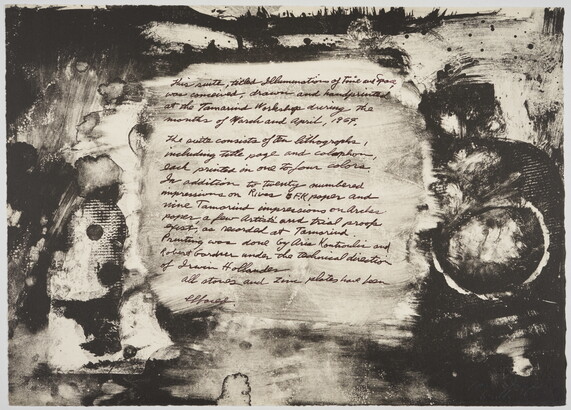 This suite, titled Illuminations of Time and Space
was conceived, drawn and handprinted
at the Tamarind Workshop during the
months of March and April, 1964.
The suite consists of ten lithographs,
including title page and colophon,
each printed in one to four colors.
In addition to twenty numbered
impressions on Rives BFK paper and
nine Tamarind impressions on Arches
paper a few Artist's and trial proofs
exist, as recorded at Tamarind
Printing was done by Aris Koutroulis and
Robert Gardner under the technical direction
of Irwin Hollander
All stones and zinc plates have been
effaced.